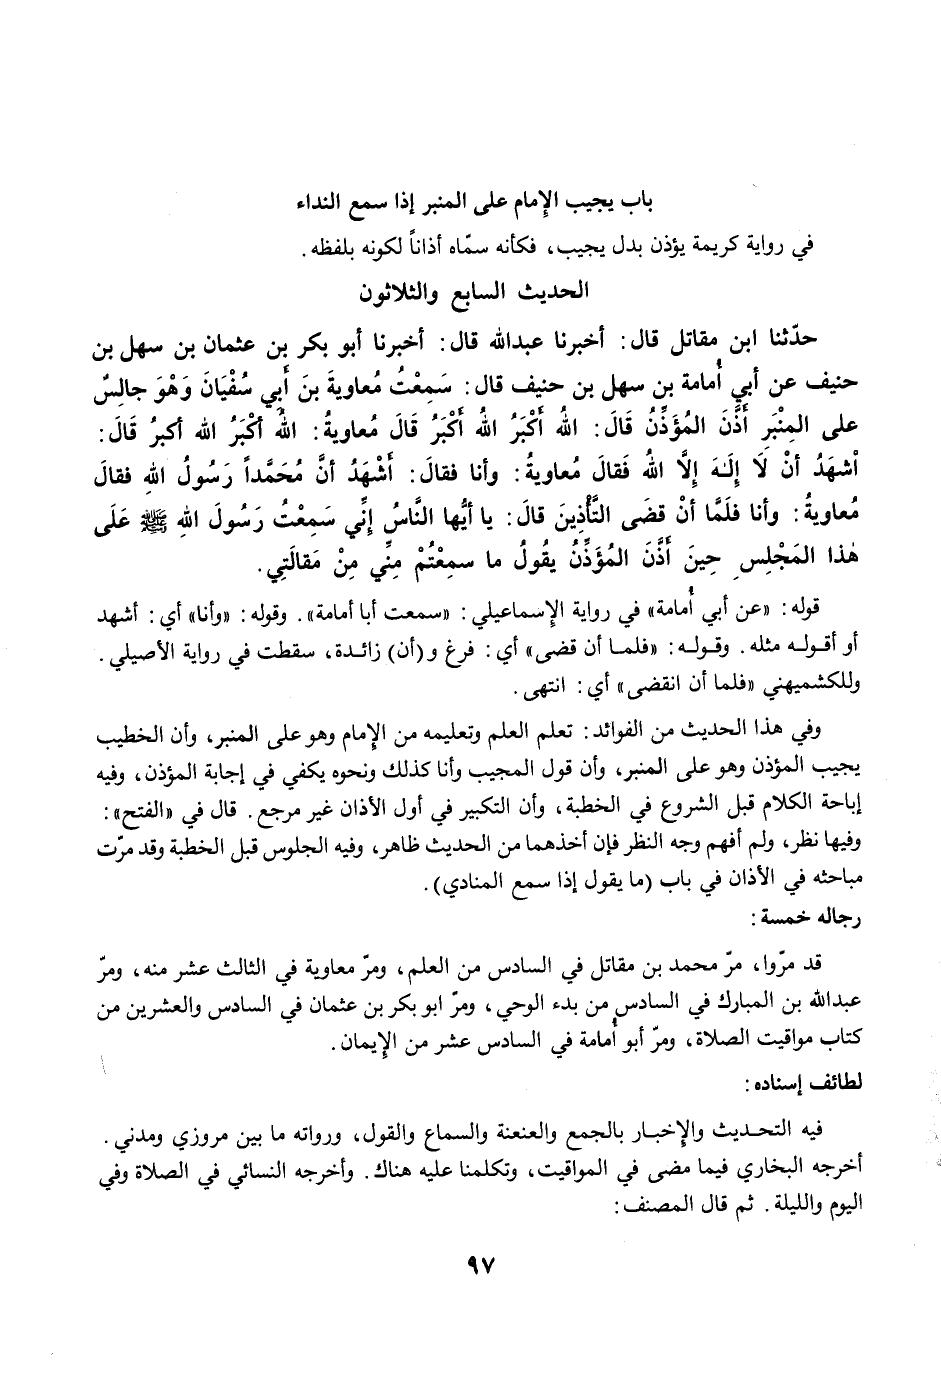 باب يجيب الإمام على المنبر إذا سمع النداء
في رواية كريمة يؤذن بدل يجيب، فكأنه سمّاه أذاناً لكونه بلفظه.
الحديث السابع والثلاثون
حدّثنا ابن مقاتل قال: أخبرنا عبدالله قال: أخبرنا أبو بكر بن عثمان بن سهل بن
حنيف عن أبي أُمامة بن سهل بن حنيف قال: سَمِعْتُ مُعاويةَ بنَ أَبي سُفْيَانَ وَهْوَ جالِسٌ
على المِنْبَرِ أَذَّنَ المُؤَذِّنُ قَالَ: اللهُ أَكْبَرُ اللهُ أَكْبَرُ قَالَ مُعاويةُ: اللهُ أكْبَرُ الله أكبرُ قَالَ:
أشهَدُ أنْ لَا إلَـهَ إلَّا اللهُ فَقَالَ مُعاويةُ: وأنا فقالَ: أَشْهَدُ أنَّ مُحَمَّداً رَسُولُ اللهِ فقالَ
مُعاويةُ: وأنا فَلَمَّا أنْ قضَى التَّأذِينَ قالَ: يا أيُّها النَّاسُ إنِّي سَمِعْتُ رَسُولَ اللهِ ﷺ عَلَى
هٰذا المَجْلِسِ حِينَ أَذَّنَ المُؤَذِّنُ يقُولُ ما سمِعْتُمْ مِنِّي مِنْ مَقالَتِي.
قوله: «عن أبي أُمامة» في رواية الإسماعيلي: «سمعت أبا أمامة». وقوله: «وأنا» أي: أشهد
أو أقـولـه مثله. وقـولـه: «فلمـا أن قضى» أي: فرغ و(أن) زائـدة، سقطت في رواية الأصيلي.
وللكشميهني «فلما أن انقضى» أي: انتهى.
وفي هذا الحديث من الفوائد: تعلم العلم وتعليمه من الإمام وهو على المنبر، وأن الخطيب
يجيب المؤذن وهو على المنبر، وأن قول المجيب وأنا كذلك ونحوه يكفي في إجابة المؤذن، وفيه
إباحة الكلام قبل الشروع في الخطبة، وأن التكبير في أول الأذان غير مرجع. قال في «الفتح»:
وفيها نظر، ولم أفهم وجه النظر فإن أخذهما من الحديث ظاهر، وفيه الجلوس قبل الخطبة وقد مرّت
مباحثه في الأذان في باب (ما يقول إذا سمع المنادي).
رجاله خمسة:
قد مرّوا، مرّ محمد بن مقاتل في السادس من العلم، ومرّ معاوية في الثالث عشر منه، ومرّ
عبدالله بن المبارك في السادس من بدء الوحي، ومرّ ابو بكر بن عثمان في السادس والعشرين من
كتاب مواقيت الصلاة، ومرّ أبو أُمامة في السادس عشر من الإيمان.
لطائف إسناده:
فيه التحـديث والإخبـار بالجمع والعنعنة والسماع والقول، ورواته ما بين مروزي ومدني.
أخرجه البخاري فيما مضى في المواقيت، وتكلمنا عليه هناك. وأخرجه النسائي في الصلاة وفي
اليوم والليلة. ثم قال المصنف:
٩٧